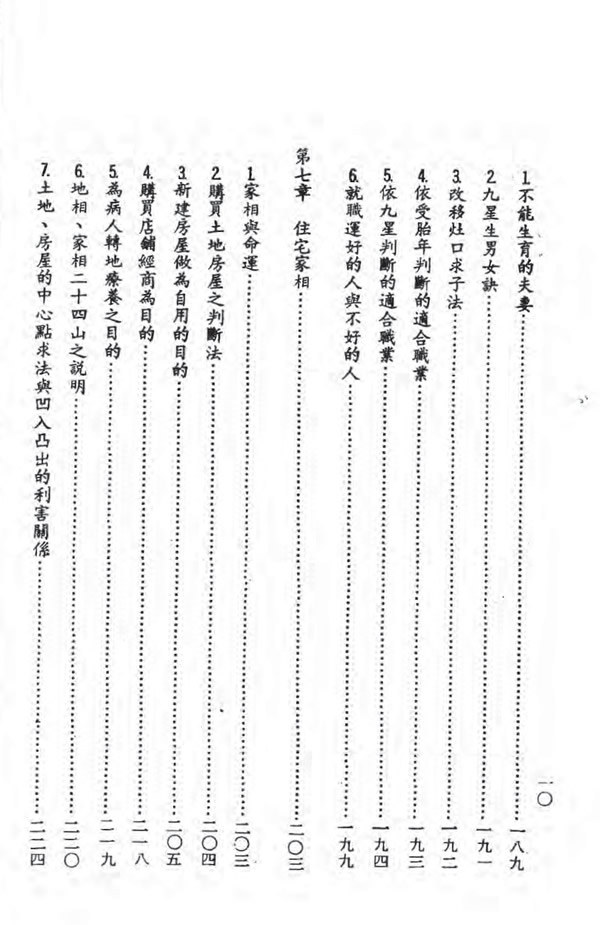 一〇
1.不能生育的夫妻……一八九
2.九星生男女訣……一九一
3.改移灶口求子法……一九二
4.依受胎年判斷的適合職業……一九三
5.依九星判斷的適合職業……一九四
6.就職運好的人與不好的人……一九九
第七章 住宅家相……二〇三
1.家相與命運……二〇三
2.購買土地房屋之判斷法……二〇四
3.新建房屋做為自用的目的……二〇五
4.購買店鋪經商為目的……二一八
5.為病人轉地療養之目的……二一九
6.地相、家相二十四山之說明……二二〇
7.土地、房屋的中心點求法與凹入凸出的利害關係……二二四